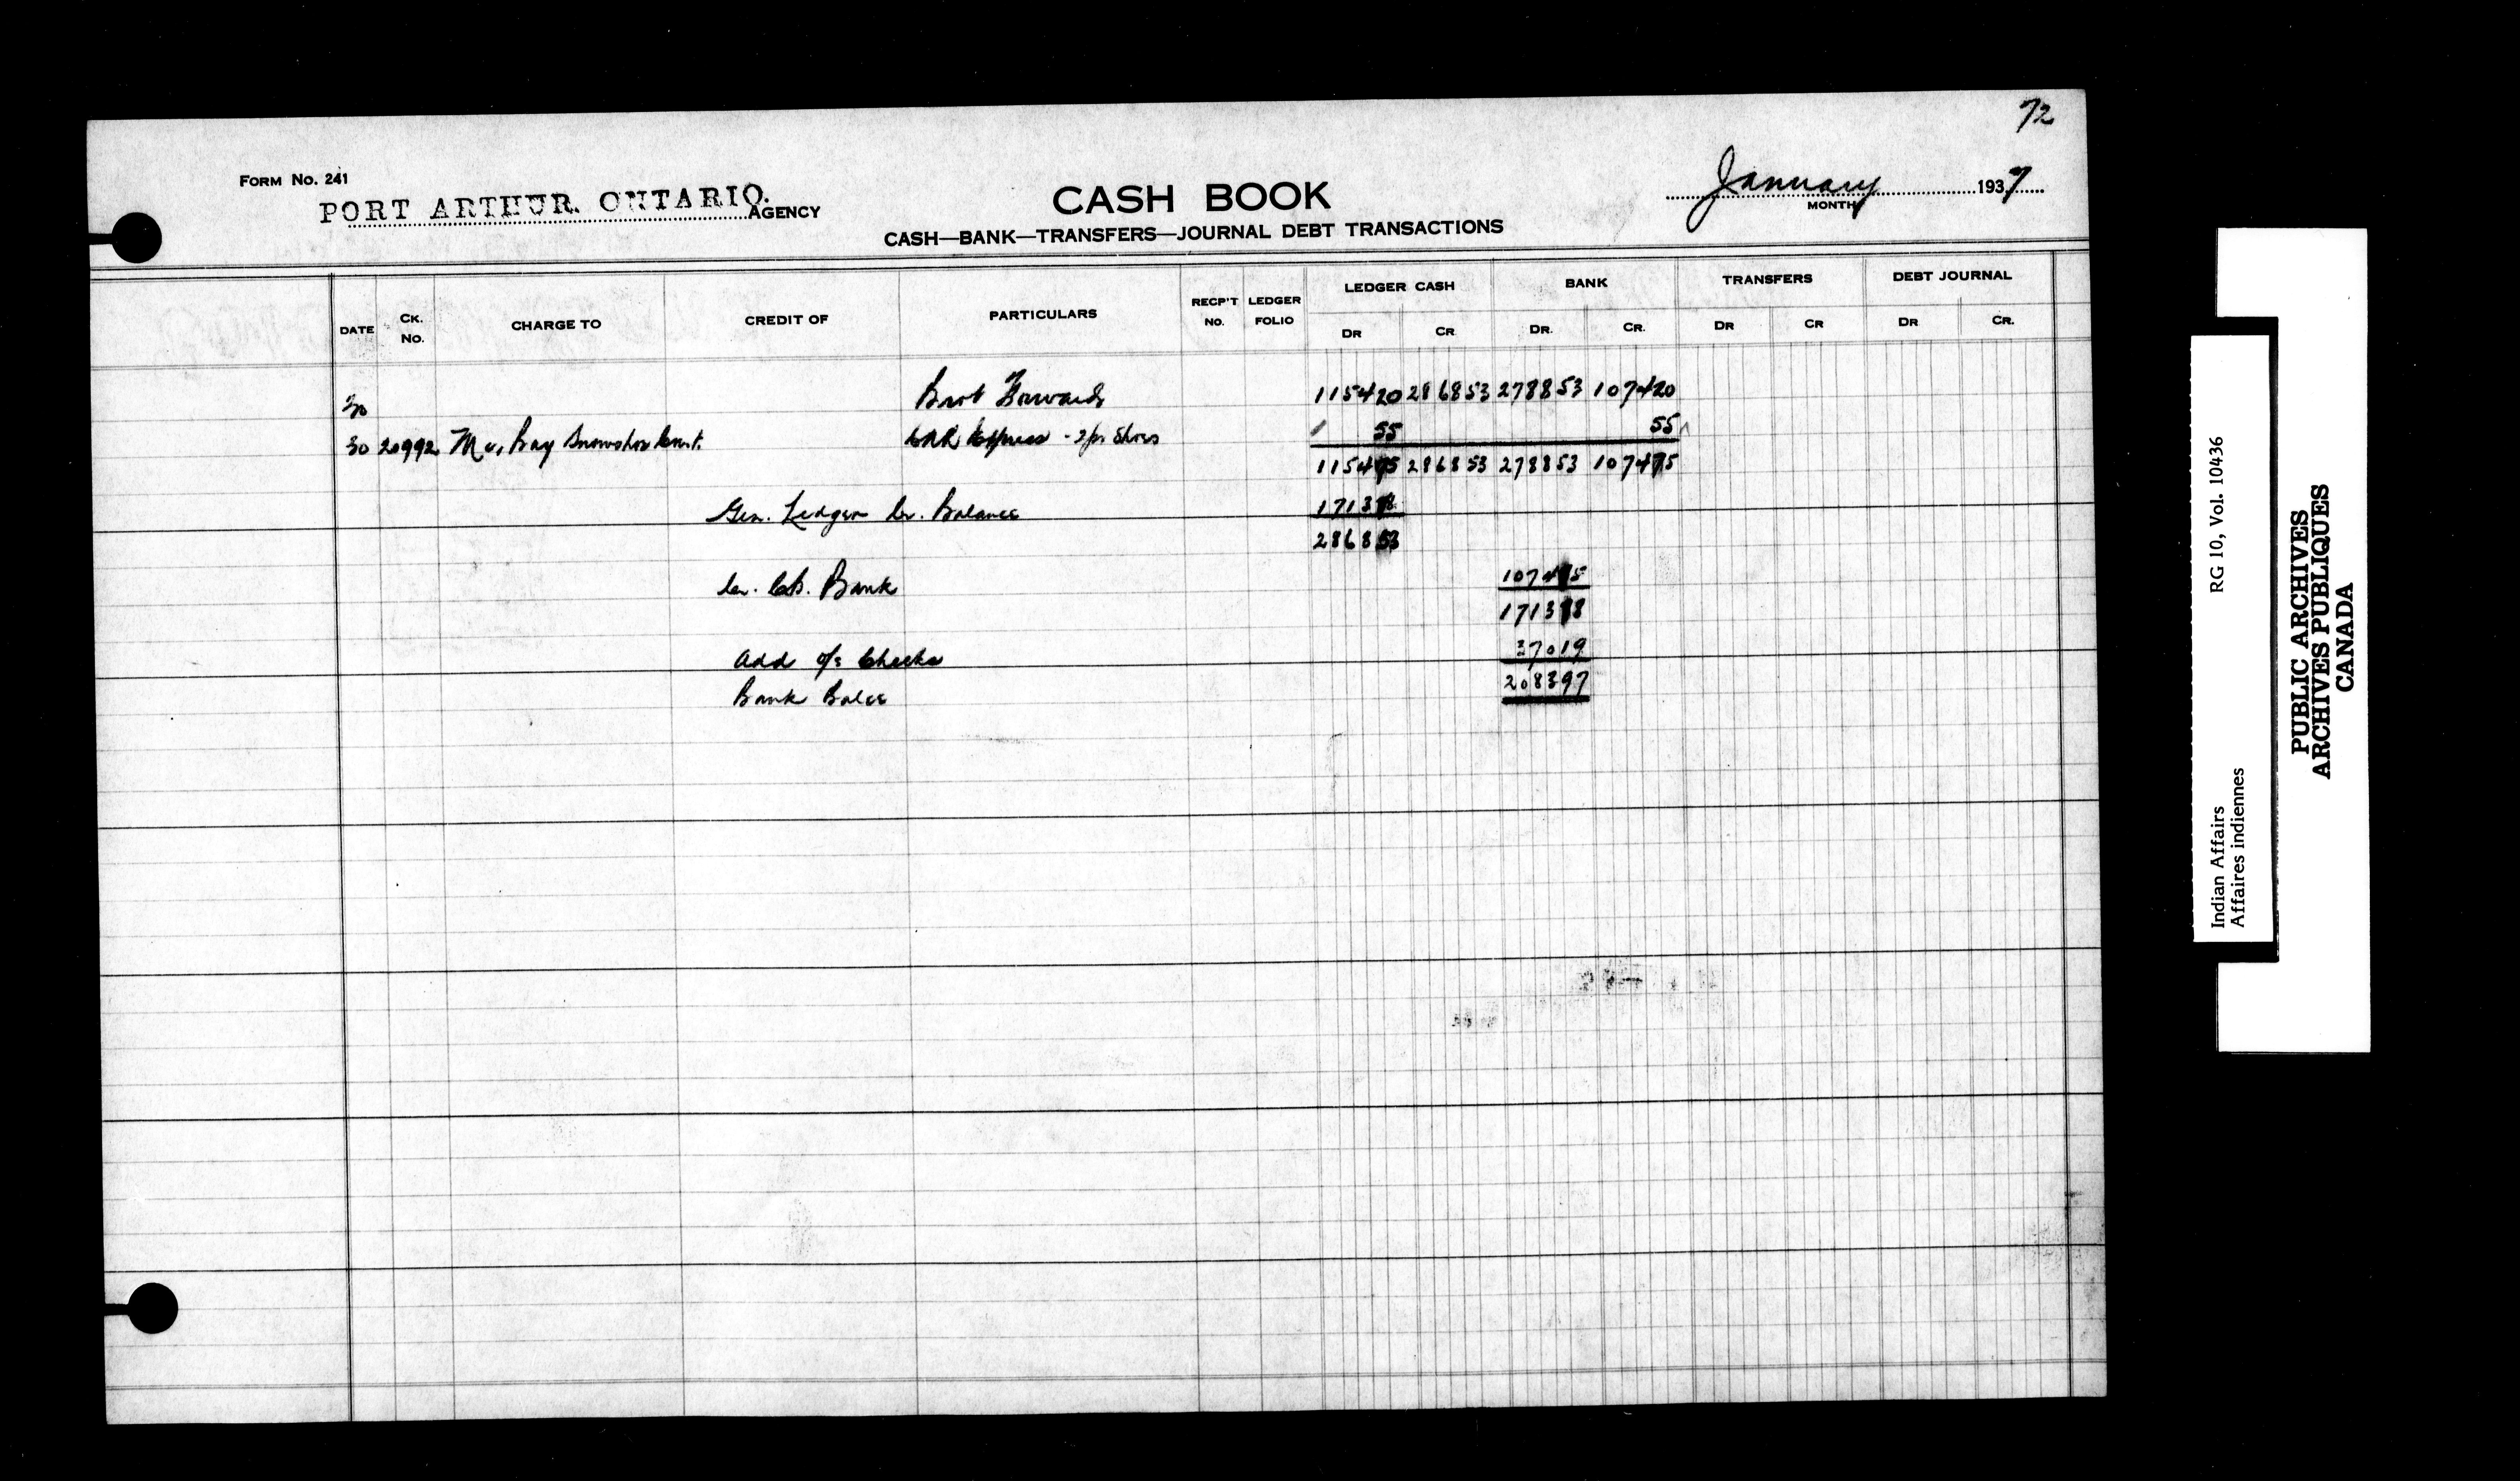 72
FORM NO. 241
PORT ARTHUR. ONTARIO. AGENCY
CASH BOOK
January 1937
MONTH
CASH—BANK—TRANSFERS—JOURNAL DEBT TRANSACTIONS
DATE CK. No. CHARGE TO CREDIT OF PARTICULARS RECP'T No. LEDGER FOLIO LEDGER CASH DR CR BANK DR. CR. TRANSFERS DR CR DEBT JOURNAL DR CR.
30 Brot Forwards 115420 286853 278853 107420
30 20992 Bay Snowshoe Express - 2 pr Shoes 55 55
115475 286853 278853 107475
Gen. Ledger Cr. Balance 171378
286853
Cr. Cb. Bank 107475
171378
Add o/s Checks 37019
Bank Balce 208397
RG 10, Vol. 10436
Indian Affairs
Affaires indiennes
PUBLIC ARCHIVES
ARCHIVES PUBLIQUES
CANADA